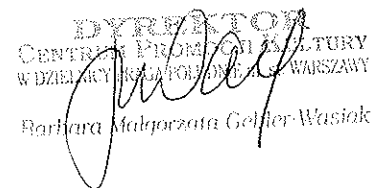 DYREKTOR
CENTRUM PROMOCJI KULTURY
W DZIELNICY PRAGA POŁUDNIE WARSZAWY
Barbara Małgorzata Gebler-Wasiak